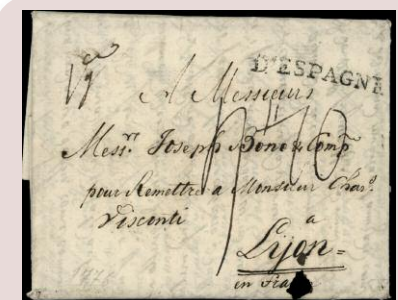 D'ESPAGNE
A Messieurs
Mess.rs Joseph Bono & Comp.
pour Remettre a Monsieur Char.
Visconti
a
Lijon =
en